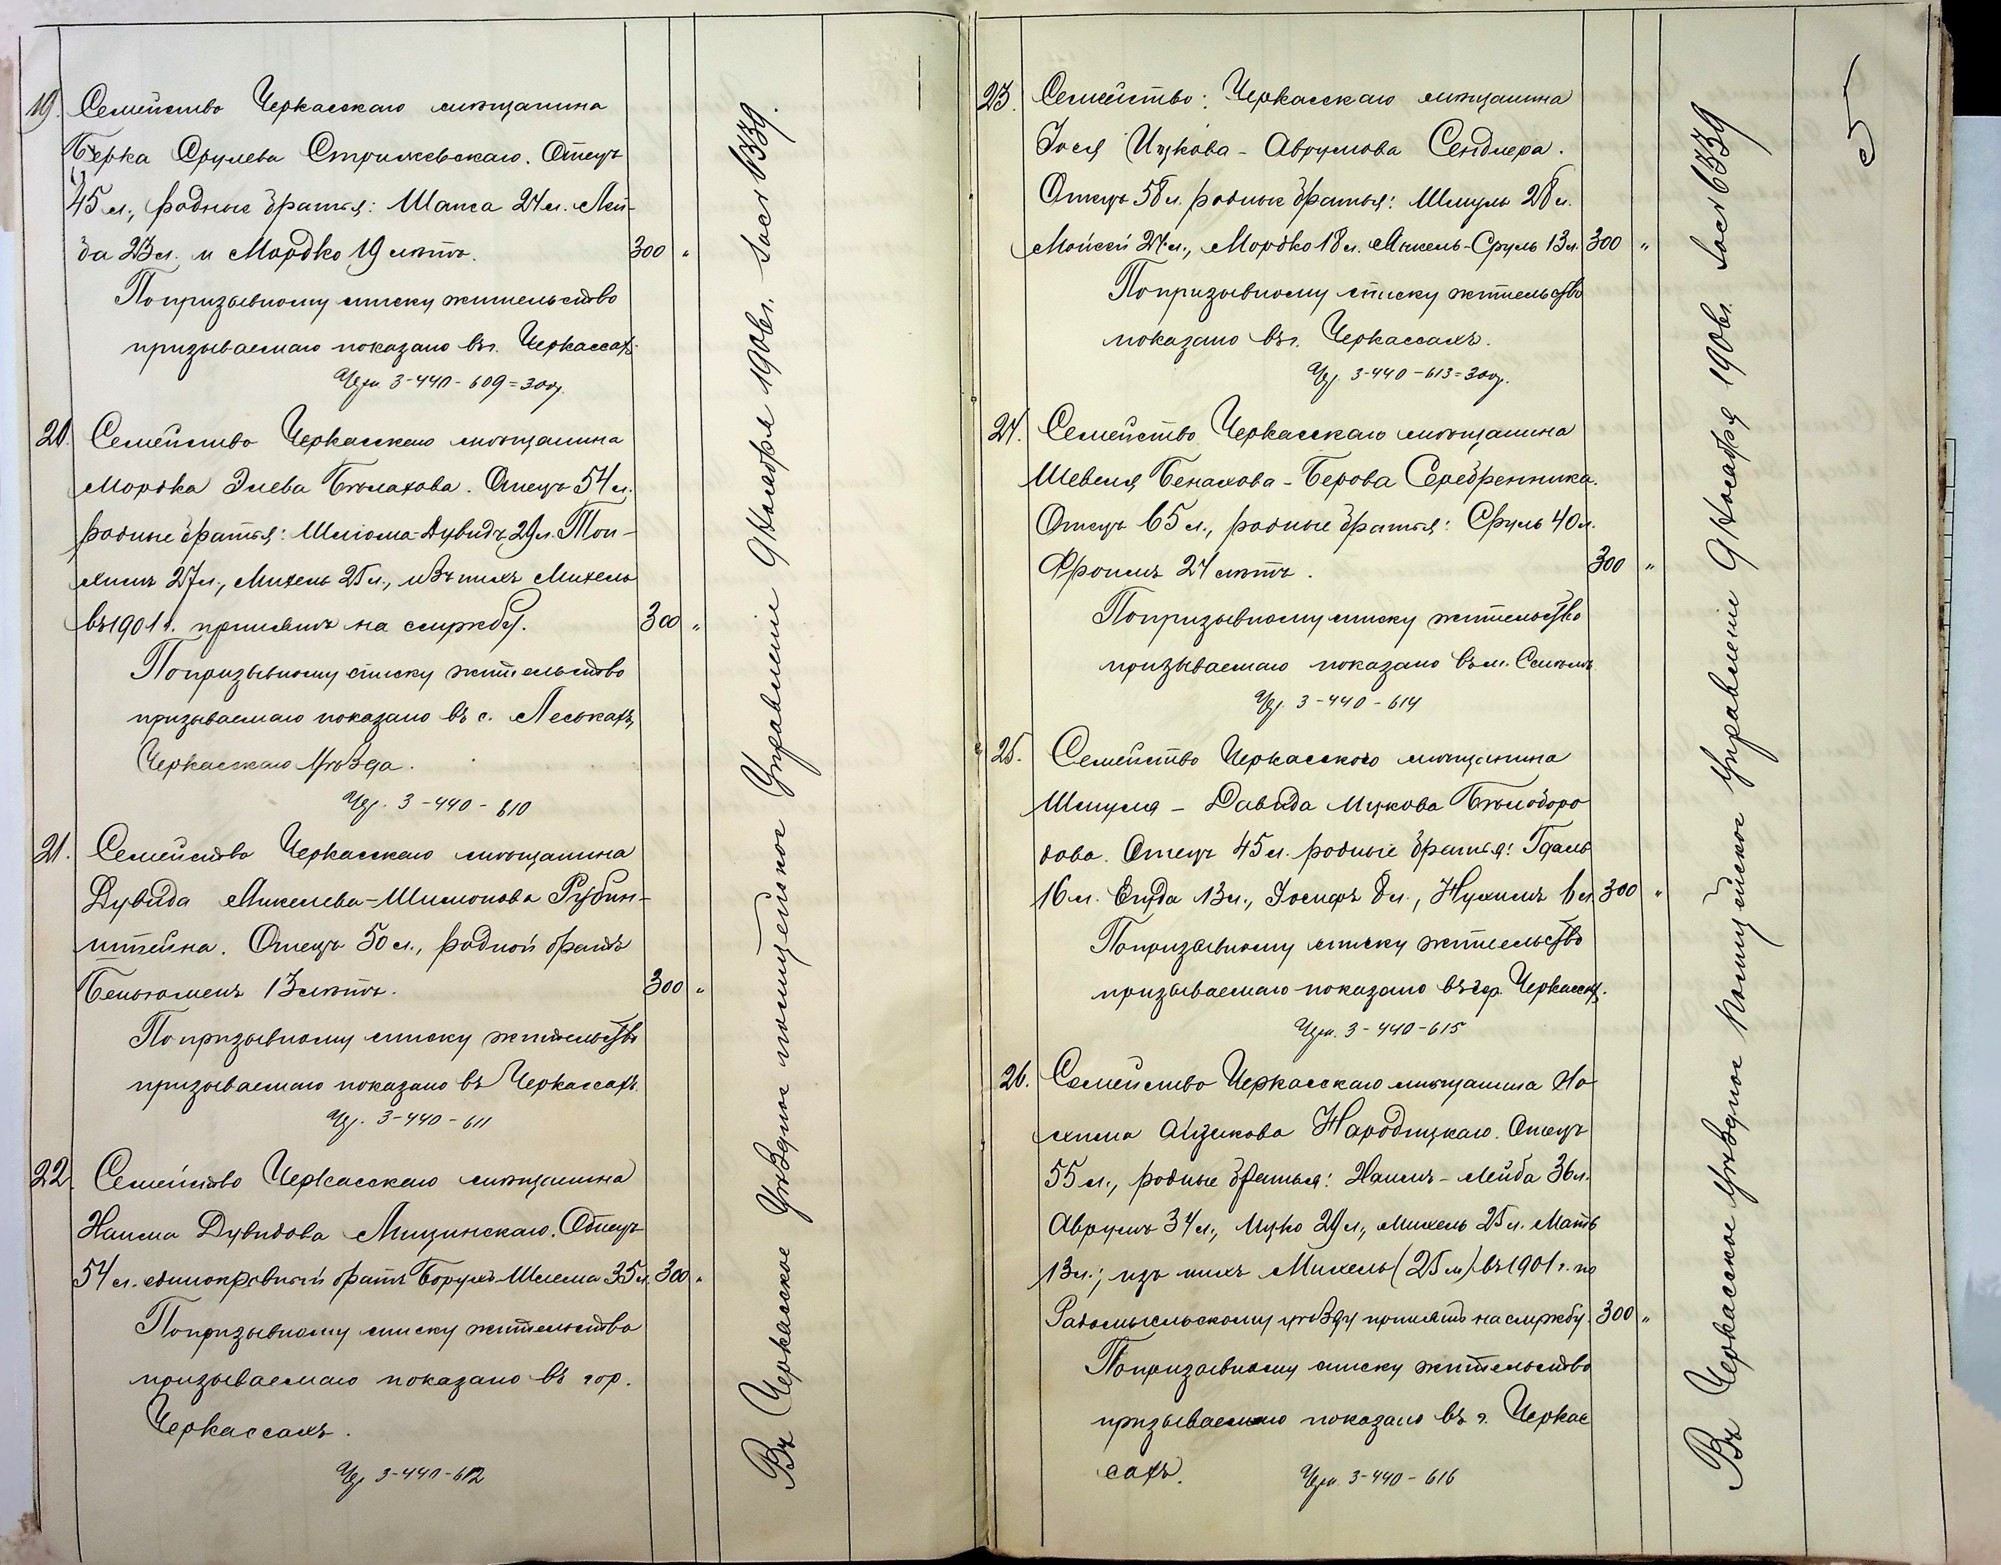 19. Семейство Черкасскаго мѣщанина
Берка Срулева Стрижевскаго. Отецъ
45 л., родные братья: Шапса 24 л. Лей-
ба 23 л. и Мордко 19 лѣтъ. 300 "
По призывному списку жительство
призываемаго показано въ г. Черкассахъ.
3-440-609=300р.
20. Семейство Черкасскаго мѣщанина
Мордка Элева Бѣлахова. Отецъ 54 л.
родные братья: Шлiома-Дувидъ 29 л. Топ-
химъ 27 л., Михель 25 л., изъ нихъ Михель
въ 1901 г. принятъ на службу. 300 "
По призывному списку жительство
призываемаго показано въ с. Леськахъ,
Черкасскаго уѣзда.
3-440-610
21. Семейство Черкасскаго мѣщанина
Дувида Анкелева-Шимонова Рубин-
штейна. Отецъ 50 л., родной братъ
Беньюменъ 13 лѣтъ. 300 "
По призывному списку жительство
призываемаго показано въ Черкассахъ.
3-440-611
22. Семейство Черкасскаго мѣщанина
Наима Дувидова Лищинскаго. Отецъ
54 л. единокровный братъ Борухъ-Шлема 35 л. 300 "
По призывному списку жительство
призываемаго показано въ гор.
Черкассахъ.
3-440-612
Въ Черкасское Уѣздное полицейское Управленiе 9 Ноября 1906 г. за № 6339.
5
23. Семейство: Черкасскаго мѣщанина
Iося Ицкова-Аврумова Сендлера.
Отецъ 58 л. родные братья: Шмуль 28 л.
Мойсей 24 л., Мордко 18 л. Янкель-Сруль 13 л. 300 "
По призывному списку жительство
показано въ г. Черкассахъ.
3-440-613=300р.
24. Семейство Черкасскаго мѣщанина
Шевеля Бенахова-Берова Серебренника.
Отецъ 65 л., родные братья: Сруль 40 л.
Фроимъ 24 лѣтъ. 300 "
По призывному списку жительство
призываемаго показано въ м.
3-440-614
25. Семейство Черкасского мѣщанина
Шмуля-Давида Ицкова Бѣлоборо
дова. Отецъ 45 л. родные братья: Гдаль
16 л. 13 л., Iосифъ 8 л., Нухимъ 6 л. 300 "
По призывному списку жительство
призываемаго показано въ гор. Черкассах.
3-440-615
26. Семейство Черкасскаго мѣщанина Но
хима Айзикова Народицкаго. Отецъ
55 л., родные братья: Наимъ-Лейба 36 л.
Аврумъ 34 л., Ицко 29 л., Михель 25 л.
13 л.; изъ нихъ Михель (25 л.) въ 1901 г. по
Радомысльскому уѣзду принятъ на службу. 300 "
По призывному списку жительство
призываемаго показано въ г. Черкас
сахъ.
3-440-616
Въ Черкасское Уѣздное Полицейское Управленiе 9 Ноября 1906 г. за № 6339